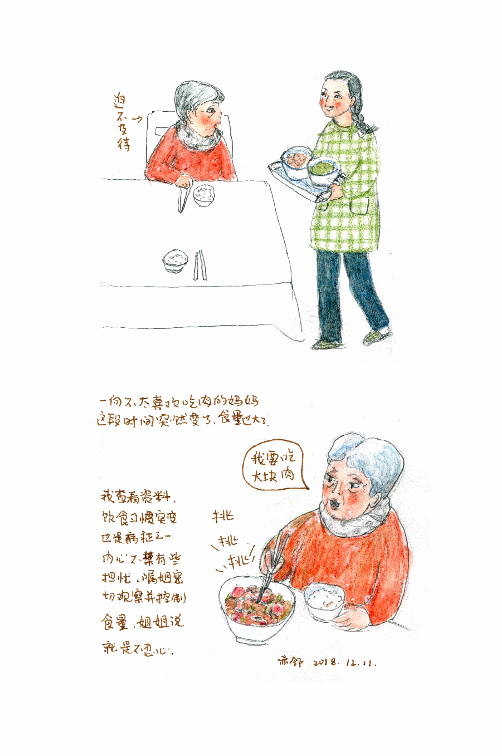 迫不及待
一向不太喜欢吃肉的妈妈
这段时间突然变了、食量也大了.
我要吃
大块肉
我查看资料,
饮食习惯突变
也是病征之一
内心不禁有些
担忧,嘱姐密
切观察并控制
食量,姐姐说
就是不忍心.
挑
挑
挑
2018.12.11.